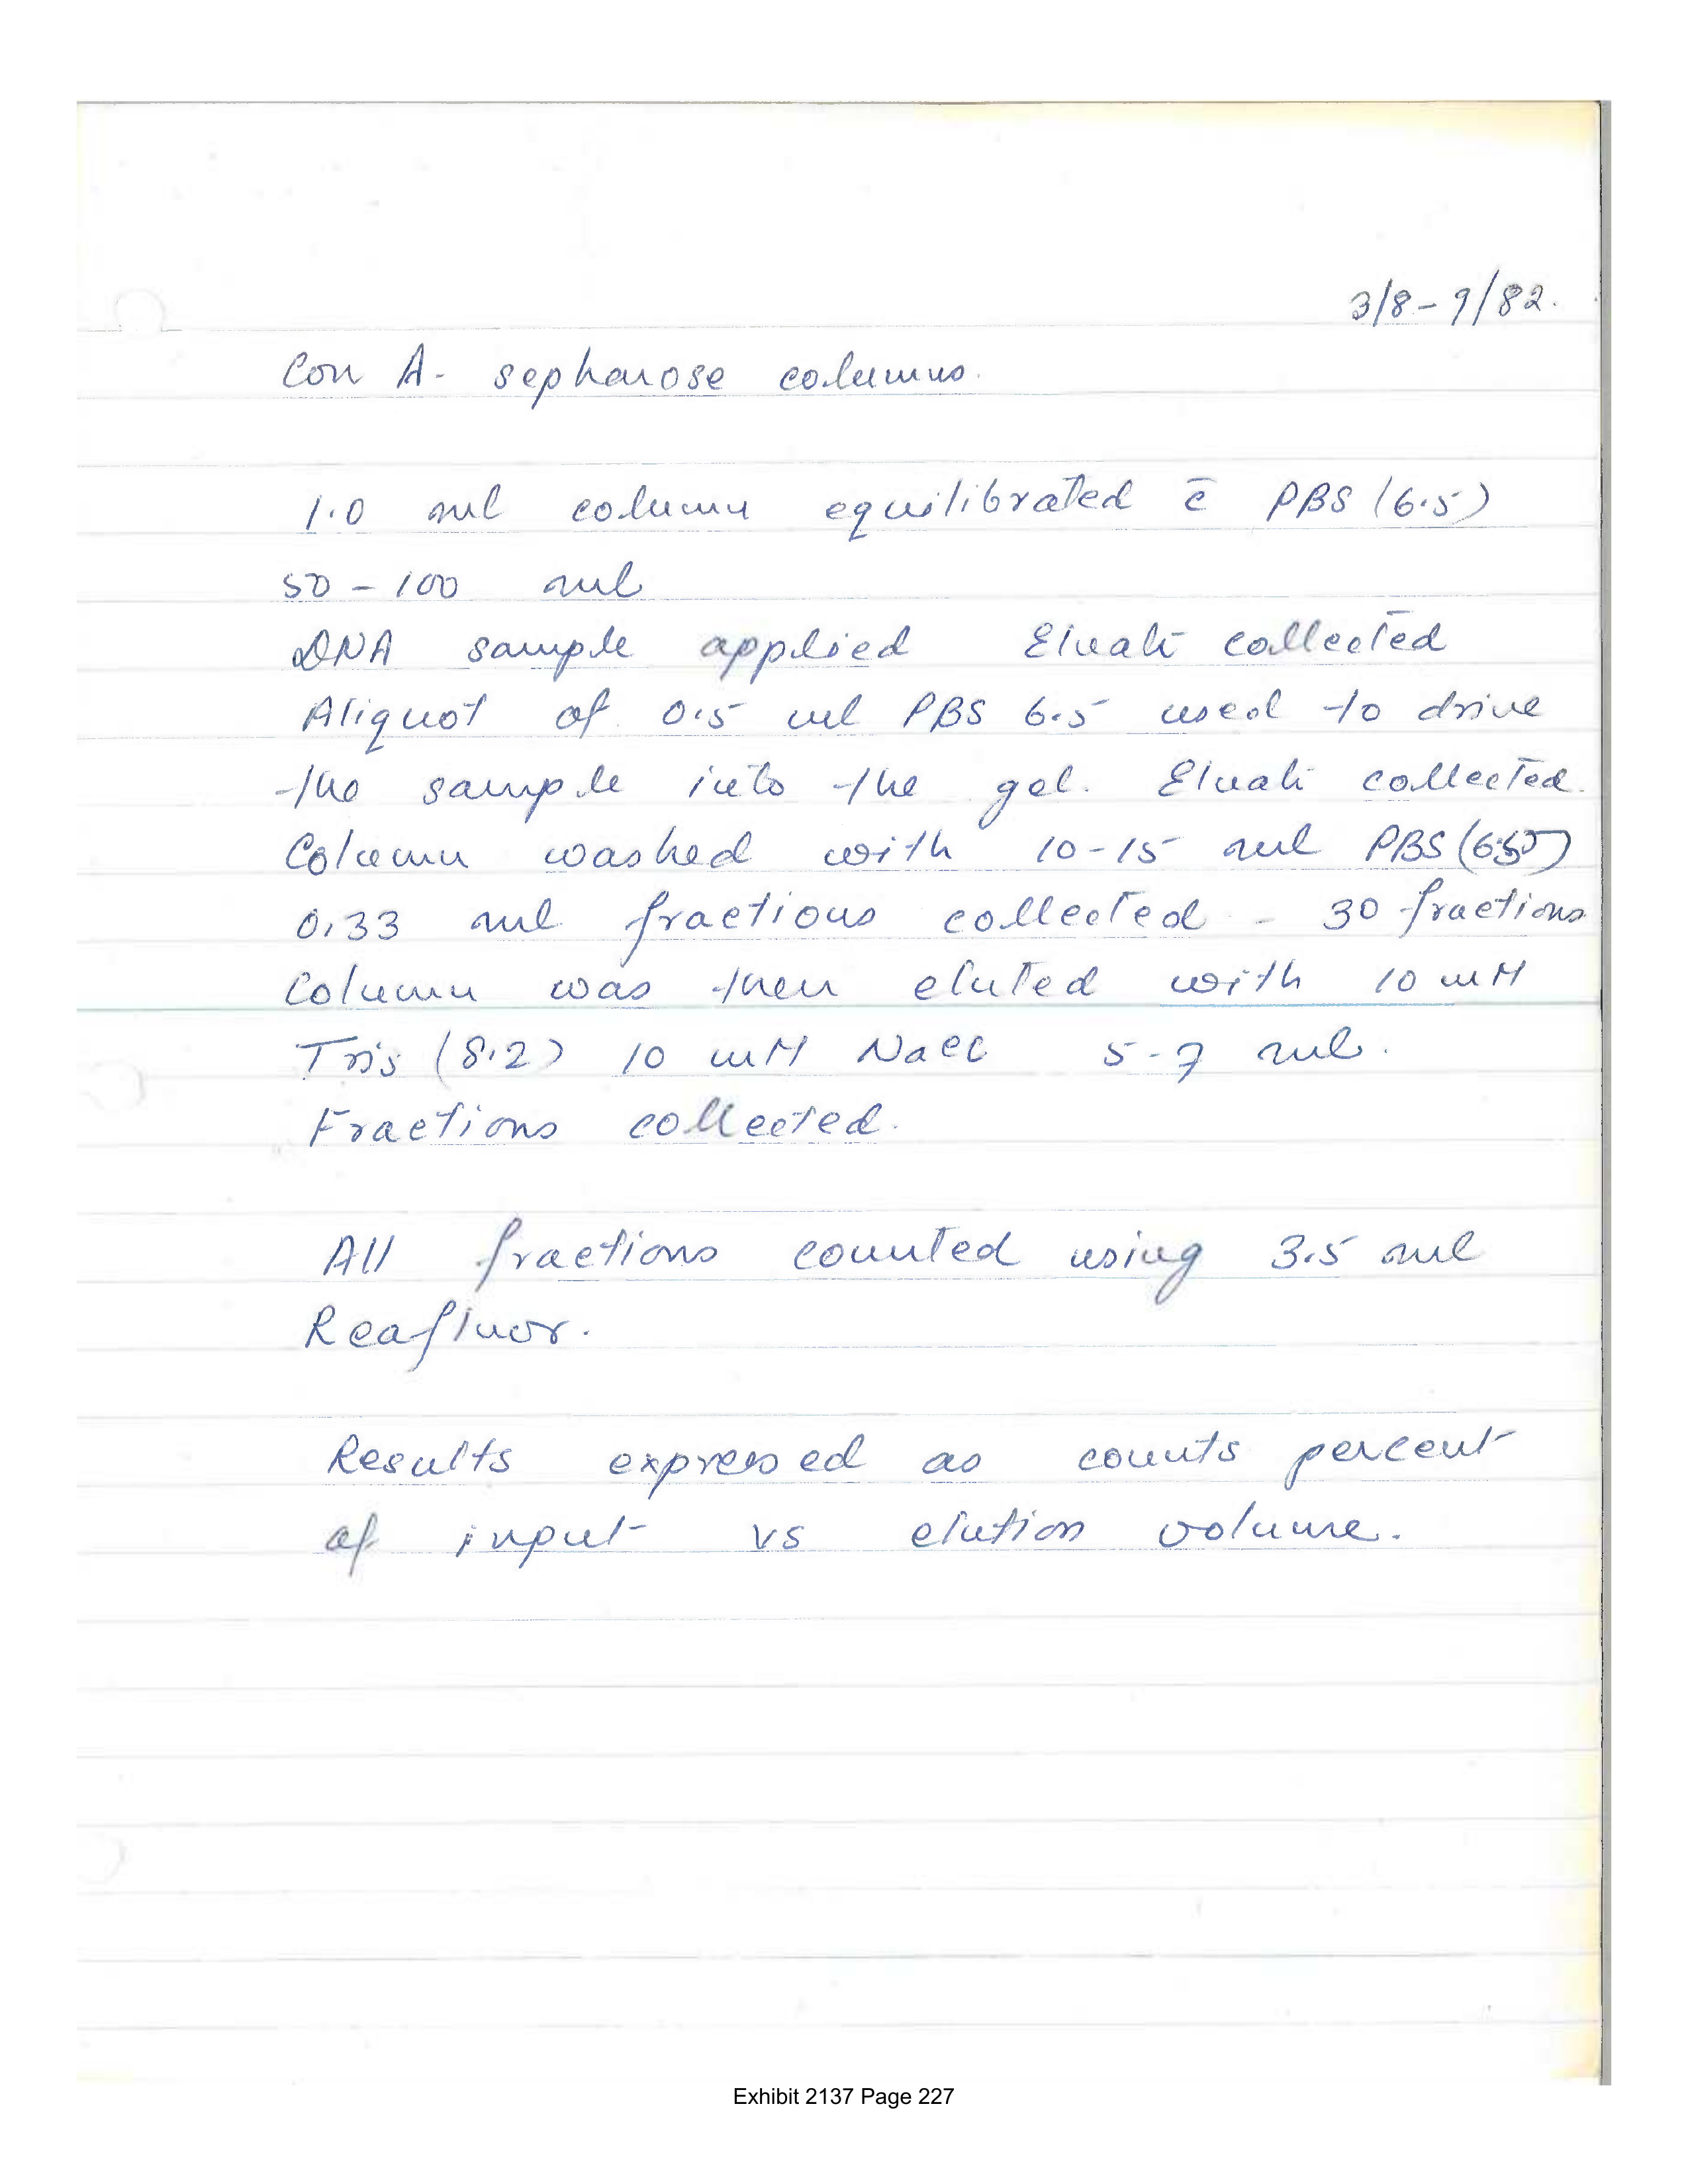 3/8-9/82.
Con A- sepharose columns.
1.0 ml column equilibrated c̄ PBS (6.5)
50-100 ml
DNA sample applied Eluate collected
Aliquot of 0.5 ml PBS 6.5 used to drive
the sample into the gel. Eluate collected.
Column washed with 10-15 ml PBS (6.5)
0.33 ml fractions collected - 30 fractions
Column was then eluted with 10 mM
Tris (8.2) 10 mM NaCl 5-7 ml.
Fractions collected.
All fractions counted using 3.5 ml
Reafluor.
Results expressed as counts percent
of input vs elution volume.
Exhibit 2137 Page 227